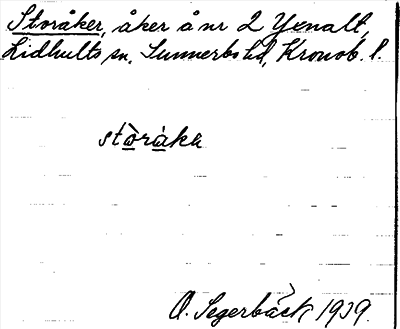 Storåker, åker å nr 2 Yxnalt,
Lidhults sn, Sunnerbo hd, Kronob. l.
stòràkɐ
O. Segerbäck 1939.